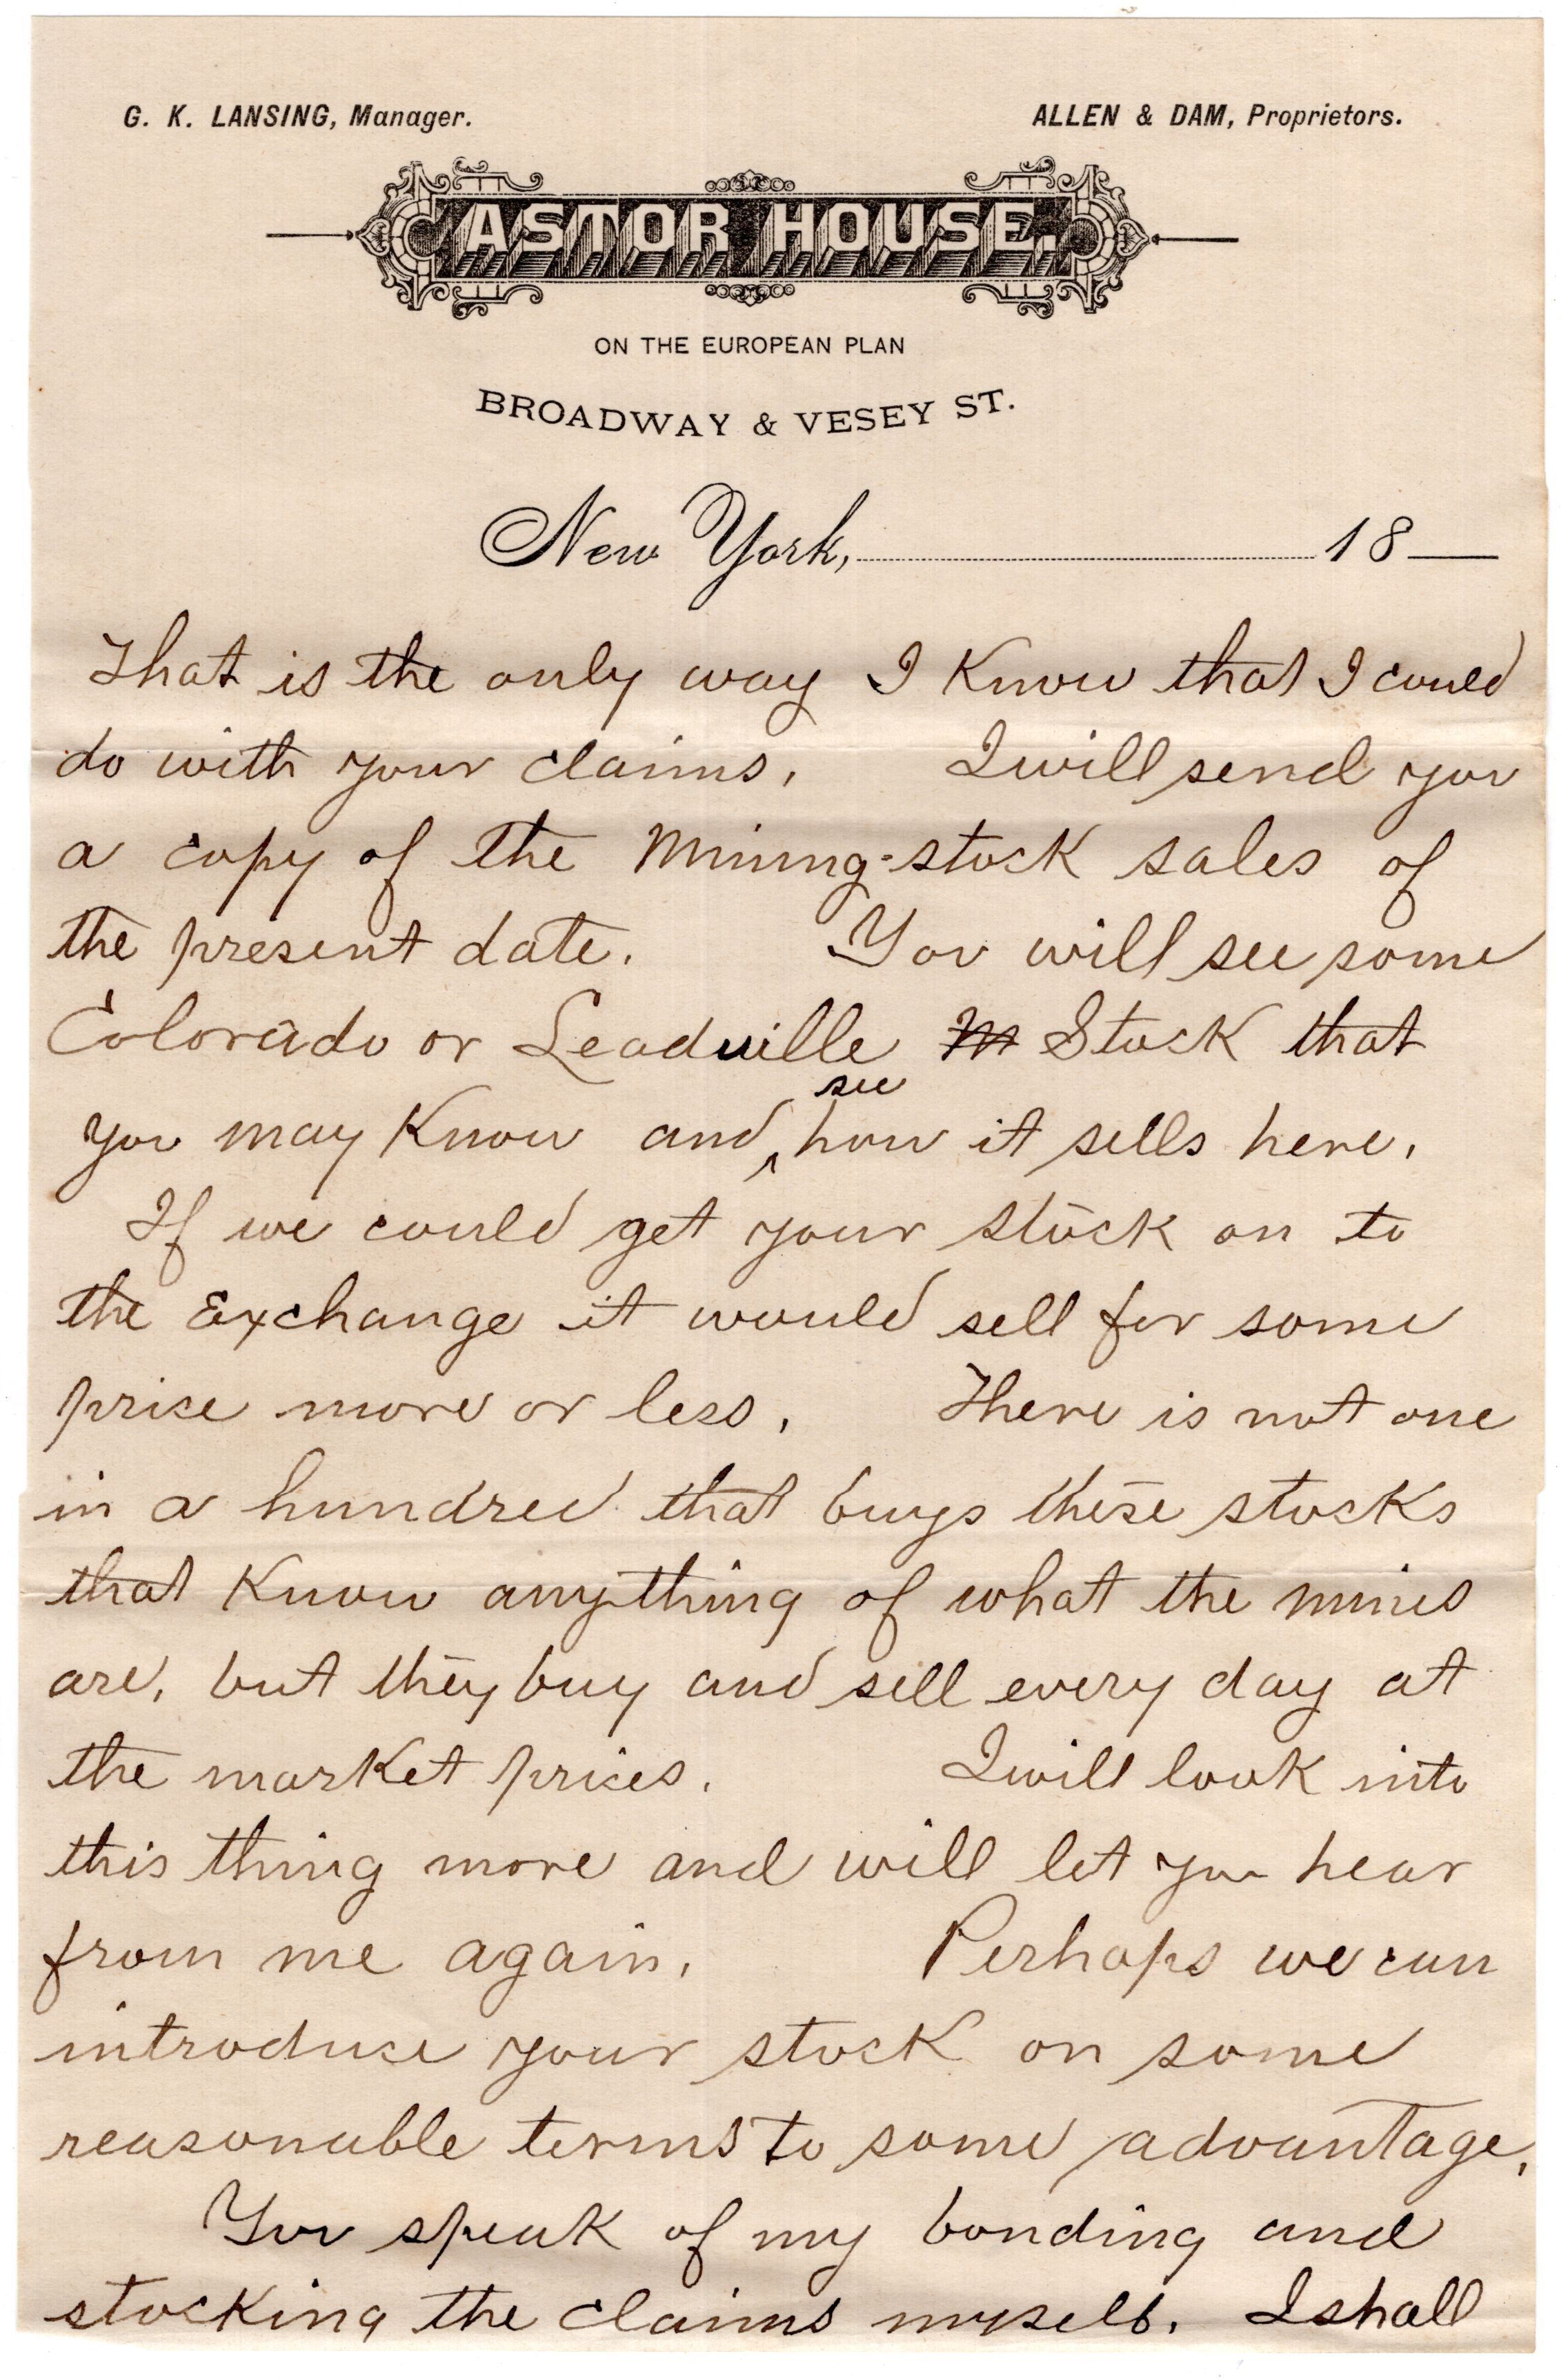 G. K. LANSING, Manager. ALLEN & DAM, Proprietors.
ASTOR HOUSE.
ON THE EUROPEAN PLAN
BROADWAY & VESEY ST.
New York, 18
That is the only way I Know that I could
do with your claims. I will send you
a copy of the Mining-stock sales of
the present date. You will see some
Colorado or Leadville M Stock that
see
you may Know and ^ how it sells here.
If we could get your stock on to
the Exchange it would sell for some
price more or less. There is not one
in a hundred that buys these stocks
that Know anything of what the mines
are, but they buy and sell every day at
the market prices. I will look into
this thing more and will let you hear
from me again. Perhaps we can
introduce your stock on some
reasonable terms to some advantage.
You speak of my bonding and
stocking the claims myself. I shall